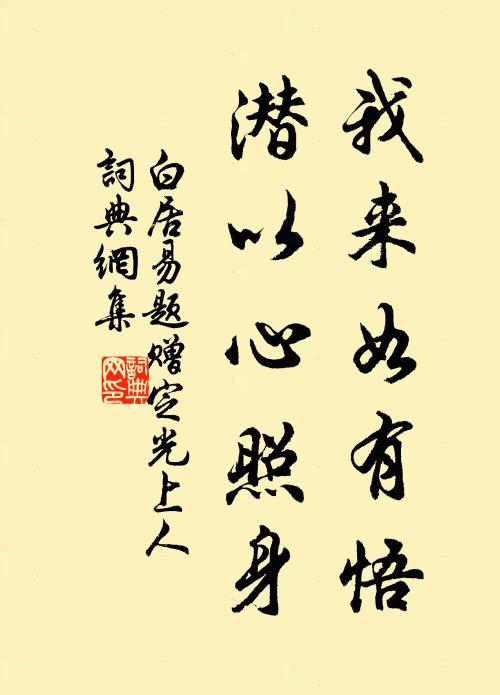 我来如有悟
潜以心照身
白居易题赠定光上人
詞典網集
詞典
网印